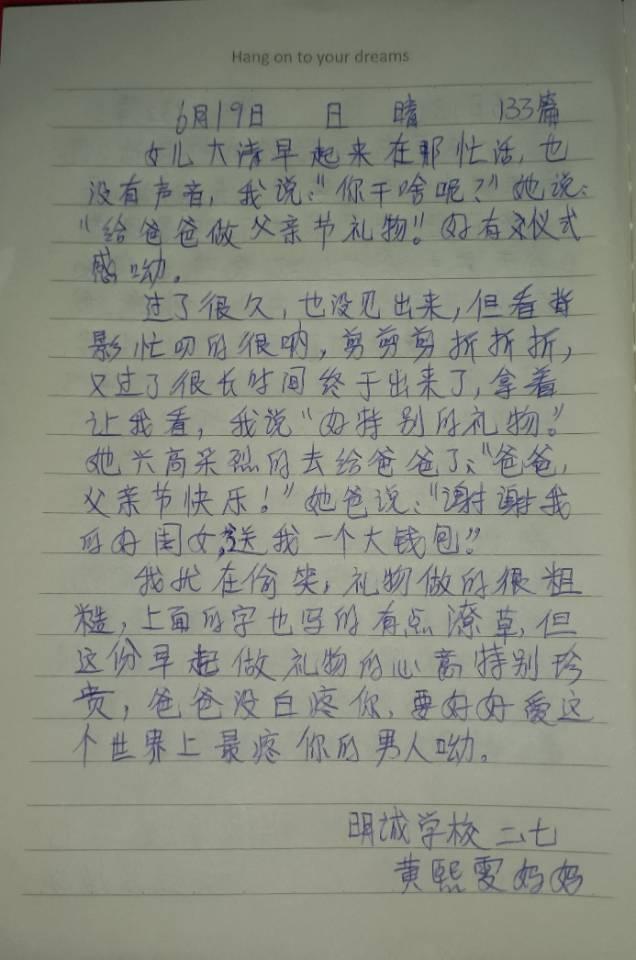 Hang on to your dreams
6月19日 日 晴 133篇
女儿大清早起来在那忙活,也
没有声音,我说:"你干啥呢?"她说:
"给爸爸做父亲节礼物。"好有仪式
感呦。
过了很久,也没见出来,但看背
影忙叨的很呐,剪剪剪折折折,
又过了很长时间终于出来了,拿着
让我看,我说"好特别的礼物。"
她兴高采烈的去给爸爸了:"爸爸,
父亲节快乐!"她爸说:"谢谢我
的好闺女,送我一个大钱包。"
我扰在偷笑,礼物做的很粗
糙,上面的字也写的有点潦草,但
这份早起做礼物的心意特别珍
贵,爸爸没白疼你,要好好爱这
个世界上最疼你的男人呦。
明诚学校二七
黄熙雯妈妈